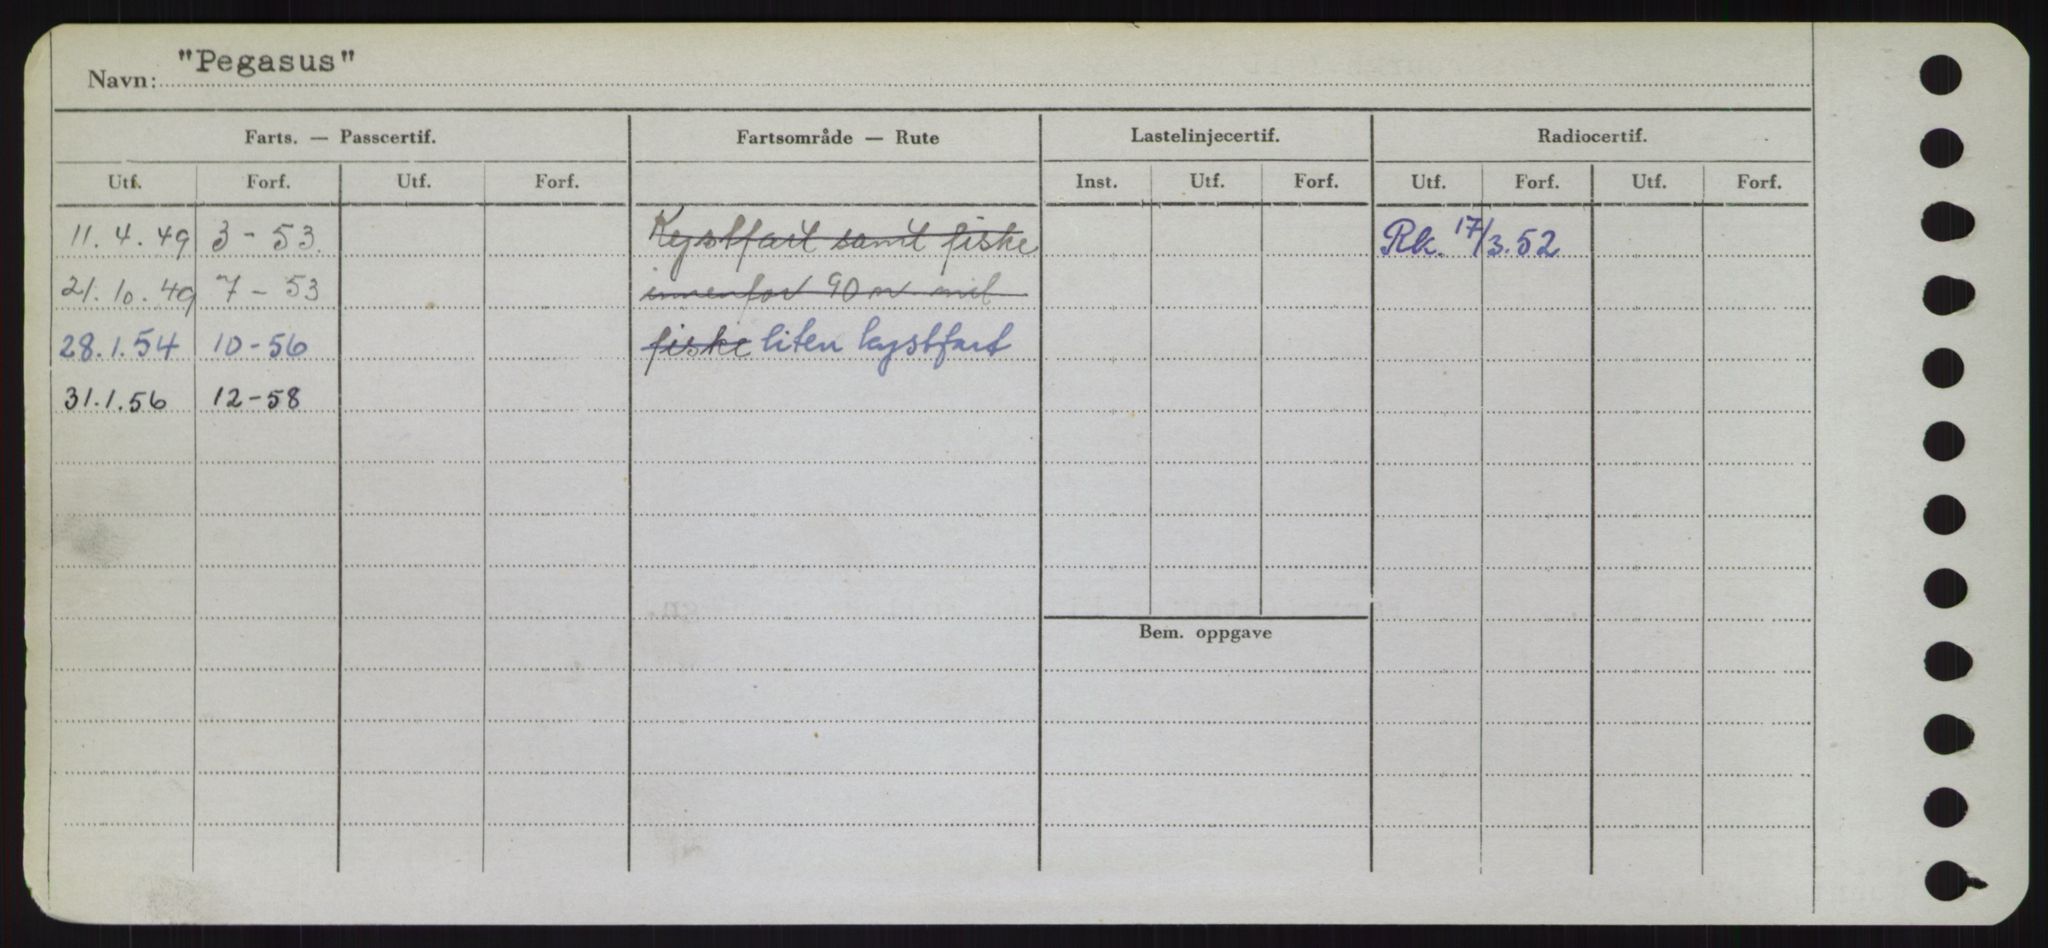 Navn: "Pegasus"
Farts. — Passcertif. Fartsområde — Rute Lastelinjecertif. Radiocertif.
Utf. Forf. Utf. Forf. Inst. Utf. Forf. Utf. Forf. Utf. Forf.
11.4.49 3-53. Kystfart samt fiske Rk. 17/3.52
21.10.49 7-53 innenfor 90 n mil
28.1.54 10-56 fiske liten kystfart
31.1.56 12-58
Bem. oppgave